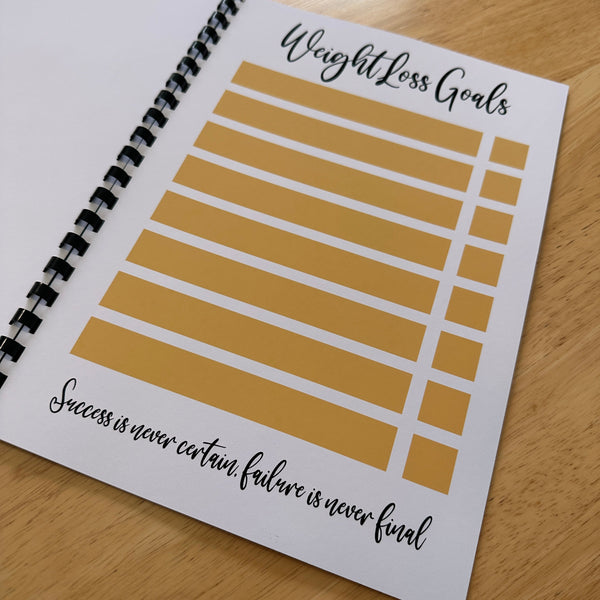 Weight Loss Goals
Success is never certain, failure is never final